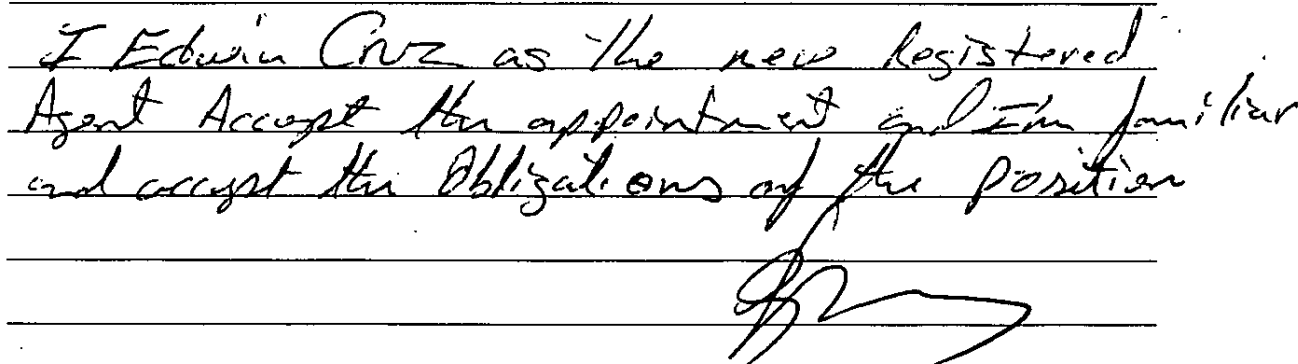 I Edwin Cruz as the new Registered
Agent Accept the appointment and I'm familiar
and accept the Obligations of the position